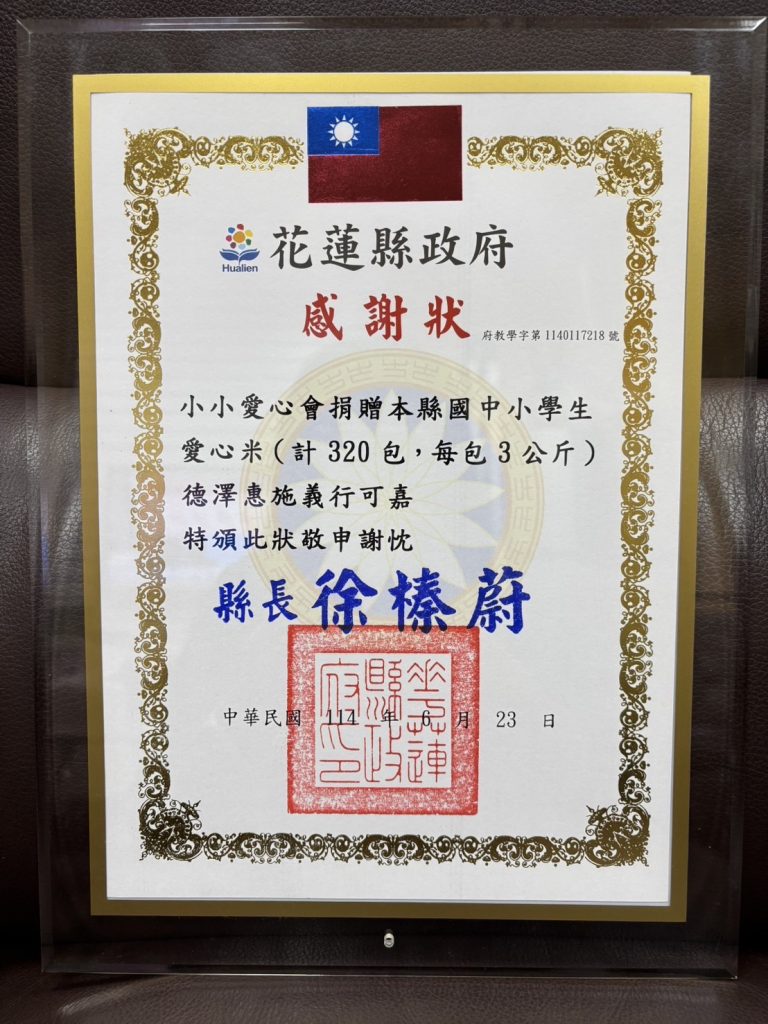 Hualien
花蓮縣政府
感謝狀
府教學字第1140117218號
小小愛心會捐贈本縣國中小學生
愛心米(計320包,每包3公斤)
德澤惠施義行可嘉
特頒此狀敬申謝忱
縣長徐榛蔚
花蓮縣政府印
中華民國 114 年 6 月 23 日